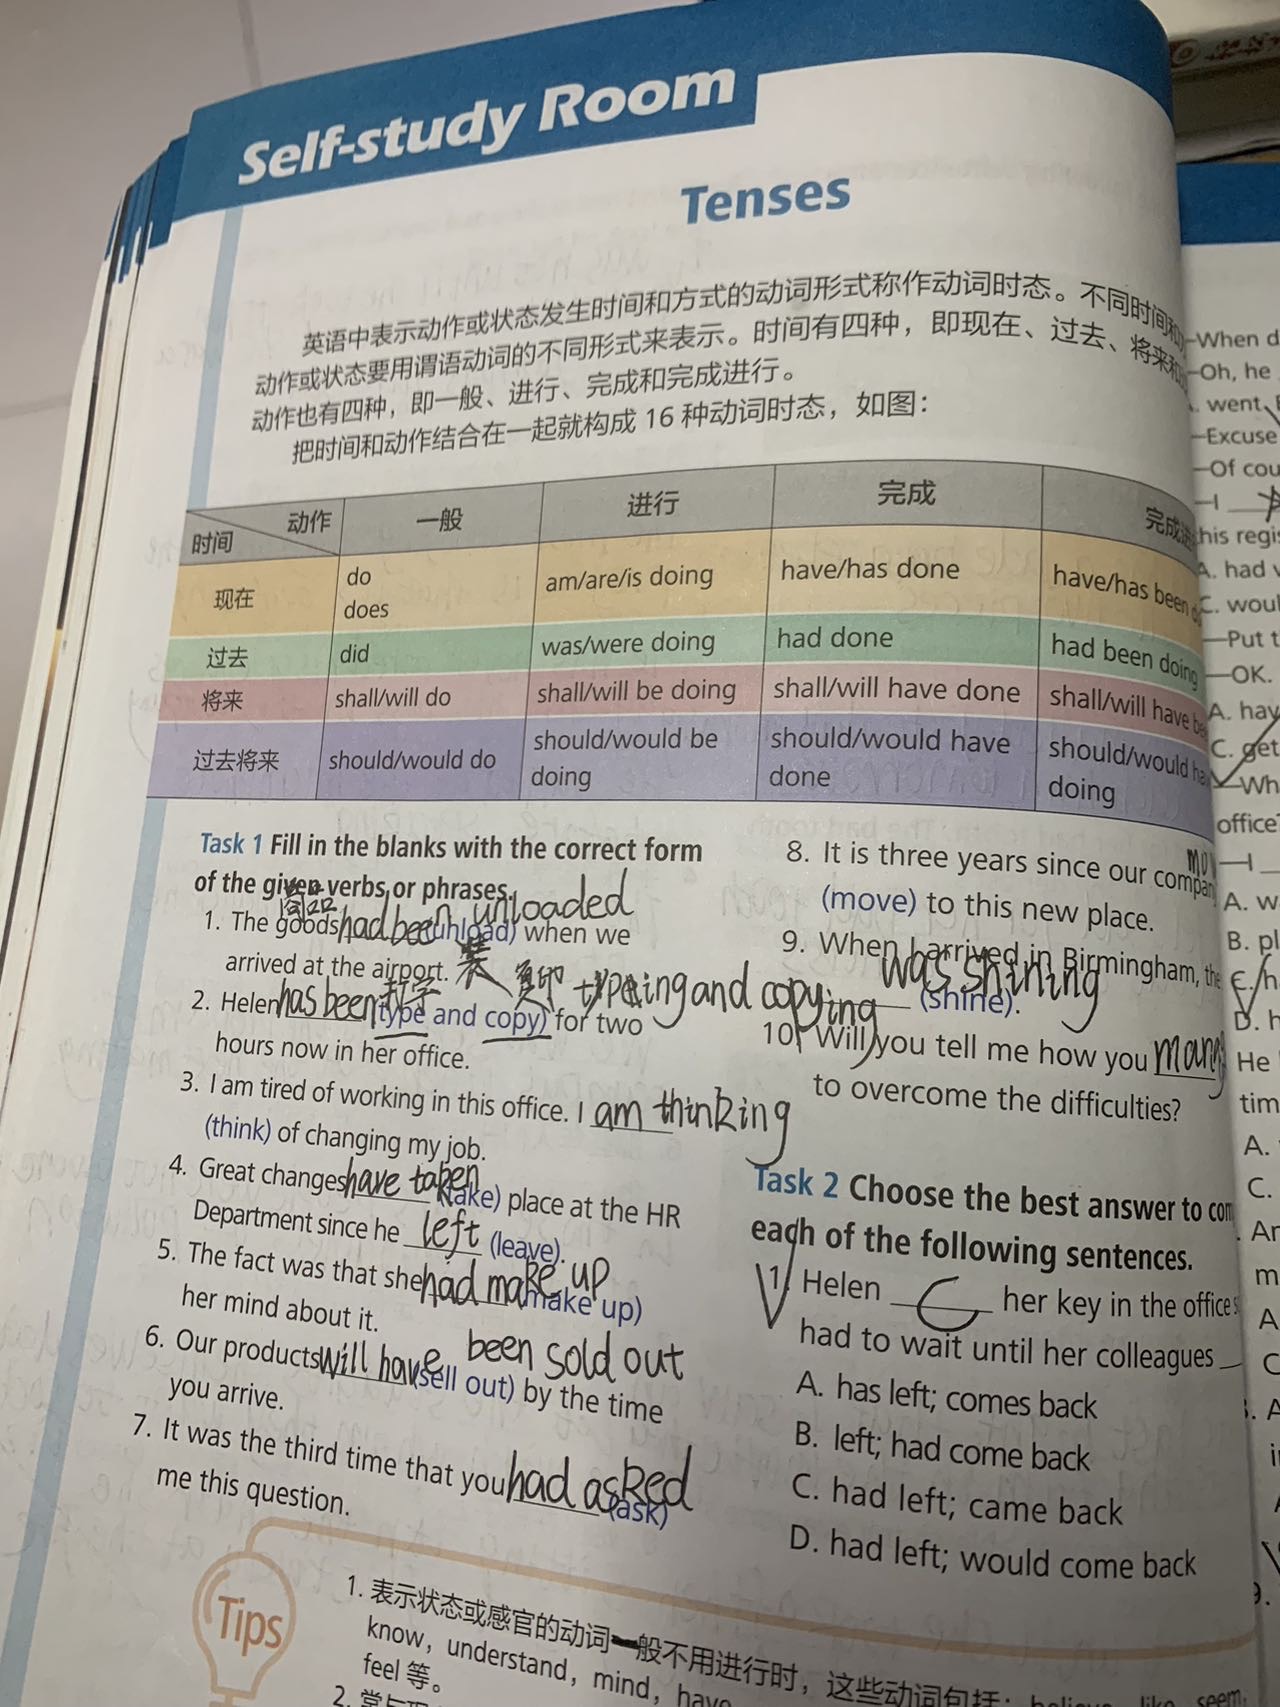 Self-study Room
Tenses
英语中表示动作或状态发生时间和方式的动词形式称作动词时态。不同时间和
动作或状态要用谓语动词的不同形式来表示。时间有四种，即现在、过去、将来和
动作也有四种，即一般、进行、完成和完成进行。
把时间和动作结合在一起就构成 16 种动词时态，如图：
动作 时间 一般 进行 完成 完成进
现在 do does am/are/is doing have/has done have/has been
过去 did was/were doing had done had been doing
将来 shall/will do shall/will be doing shall/will have done shall/will have
过去将来 should/would do should/would be doing should/would have done should/would doing
Task 1 Fill in the blanks with the correct form
of the given verbs or phrases.
商品
1. The goods had been unloaded (unload) when we
arrived at the airport. 装
打字 复印
2. Helen has been typeing and copying (type and copy) for two
hours now in her office.
3. I am tired of working in this office. I am thinking
(think) of changing my job.
4. Great changes have taken (take) place at the HR
Department since he left (leave).
5. The fact was that she had make up (make up)
her mind about it.
6. Our products will have been sold out (sell out) by the time
you arrive.
7. It was the third time that you had asked (ask)
me this question.
8. It is three years since our
(move) to this new place.
9. When I arrived in Birmingham, the
was shining (shine).
10. Will you tell me how you
to overcome the difficulties?
Task 2 Choose the best answer to
each of the following sentences.
1. Helen C her key in the office
had to wait until her colleagues
A. has left; comes back
B. left; had come back
C. had left; came back
D. had left; would come back
Tips
1. 表示状态或感官的动词一般不用进行时，这些动词包括：
know, understand, mind, have
feel 等。
2.
—When
—Oh, he
went
—Excuse
—Of
—I
his
A. had
C.
—Put
—OK.
A.
C. get
office?
—I
A.
B.
D.
He
A.
C.
A
C